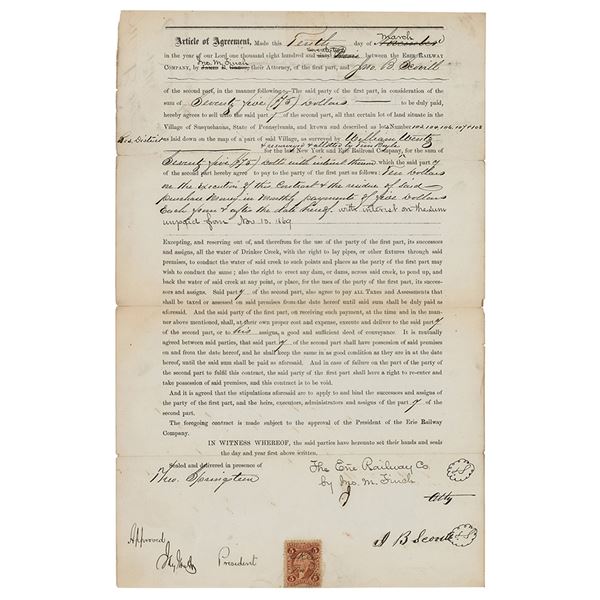 March
Article of Agreement, Made this Tenth day of November
seventy
in the year of our Lord one thousand eight hundred and sixty between the ERIE RAILWAY
Jno. M. Finch
COMPANY, by their Attorney, of the first part, and Jno. B. Scovill
of the second part, in the manner following:—The said party of the first part, in consideration of the
sum of Seventy five (75) Dollars to be duly paid,
hereby agrees to sell unto the said party of the second part, all that certain lot of land situate in the
Village of Susquehanna, State of Pennsylvania, and known and described as lots Number 102, 104, 106, 107 & 108
as laid down on the map of a part of said Village, as surveyed by William Wentz
& resurveyed & allotted by Tim Boyle
for the late New York and Erie Railroad Company, for the sum of
Seventy five (75) Dolls with interest thereon which the said party
of the second part hereby agree to pay to the party of the first part as follows: Ten Dollars
on the execution of this Contract & the residue of said
purchase money in monthly payments of five Dollars
Each from & after the date hereof, with interest on the sum
unpaid from Nov 10. 1869
Excepting, and reserving out of, and therefrom for the use of the party of the first part, its successors
and assigns, all the water of Drinker Creek, with the right to lay pipes, or other fixtures through said
premises, to conduct the water of said creek to such points and places as the party of the first part may
wish to conduct the same; also the right to erect any dam, or dams, across said creek, to pond up, and
back the water of said creek at any point, or place, for the uses of the party of the first part, its succes-
sors and assigns. Said party of the second part, also agree to pay ALL Taxes and Assessments that
shall be taxed or assessed on said premises from the date hereof until said sum shall be duly paid as
aforesaid. And the said party of the first part, on receiving such payment, at the time and in the man-
ner above mentioned, shall, at their own proper cost and expense, execute and deliver to the said party
of the second part, or to his assigns, a good and sufficient deed of conveyance. It is mutually
agreed between said parties, that said party of the second part shall have possession of said premises
on and from the date hereof, and he shall keep the same in as good condition as they are in at the date
hereof, until the said sum shall be paid as aforesaid. And in case of failure on the part of the party
of the second part to fulfil this contract, the said party of the first part shall have a right to re-enter and
take possession of said premises, and this contract is to be void.
And it is agreed that the stipulations aforesaid are to apply to and bind the successors and assigns of
the party of the first part, and the heirs, executors, administrators and assigns of the party of the
second part.
The foregoing contract is made subject to the approval of the President of the Erie Railway
Company.
IN WITNESS WHEREOF, the said parties have hereunto set their hands and seals
the day and year first above written.
Sealed and delivered in presence of
Theo. Springsteen
The Erie Railway Co.
by Jno. M. Finch
Atty
J B Scovill
Approved
Jay Gould President